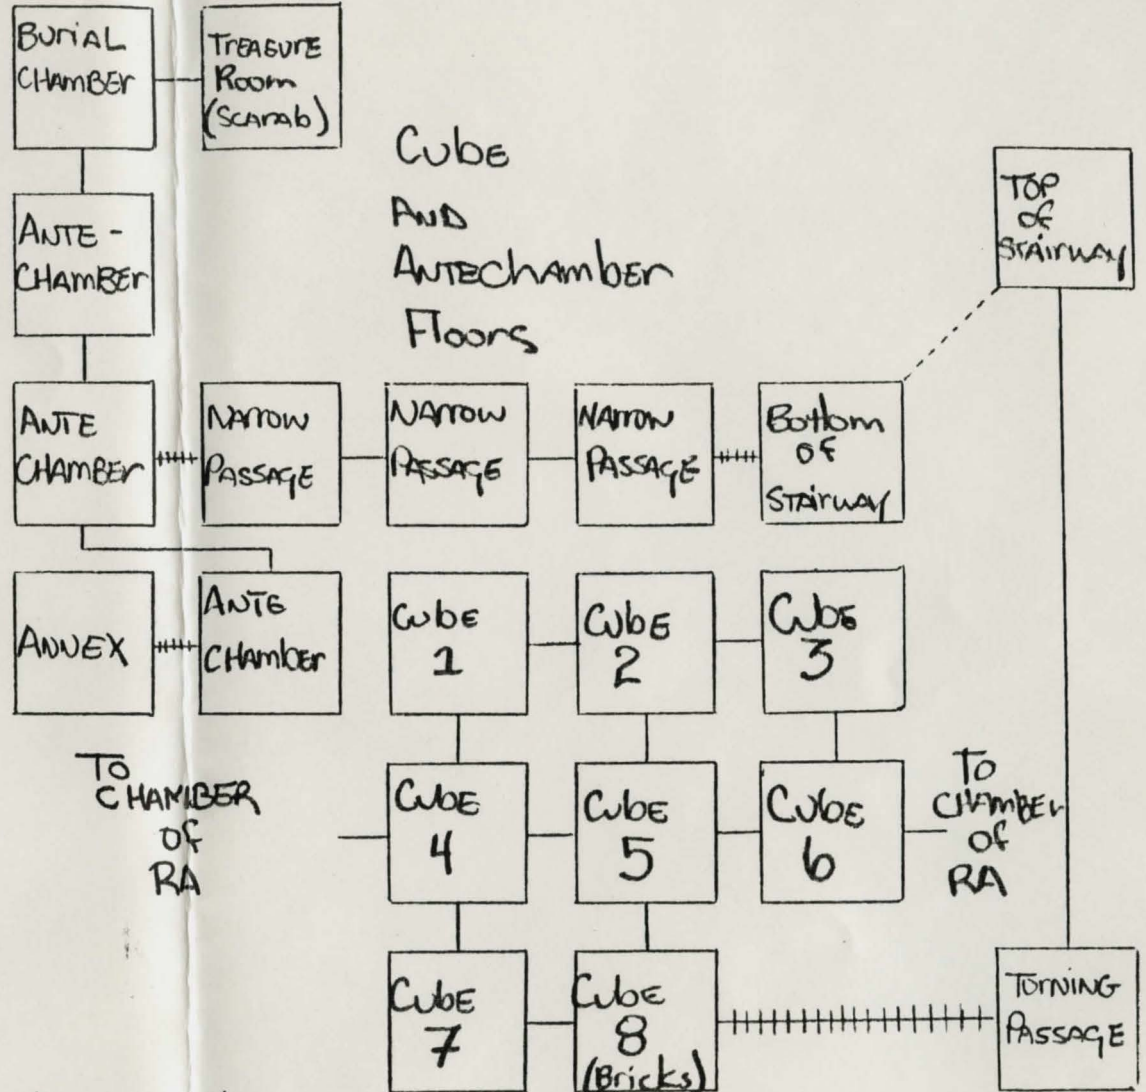 BURIAL
CHAMBER
TREASURE
Room
(SCARAb)
CubE
AND
ANTEChambEr
Floors
TOP
of
STAIRWAY
ANTE -
CHAMBEr
ANTE
CHAMBEr
NARROW
PASSAGE
NARROW
PASSAGE
NARROW
PASSAGE
Bottom
OF
STAIRWAY
ANNEX
ANTE
CHAMbEr
CubE
1
CubE
2
CubE
3
TO
CHAMBER
of
RA
CubE
4
CubE
5
CubE
6
To
CHAMBER
of
RA
CubE
7
CubE
8
(Bricks)
TURNING
PASSAGE